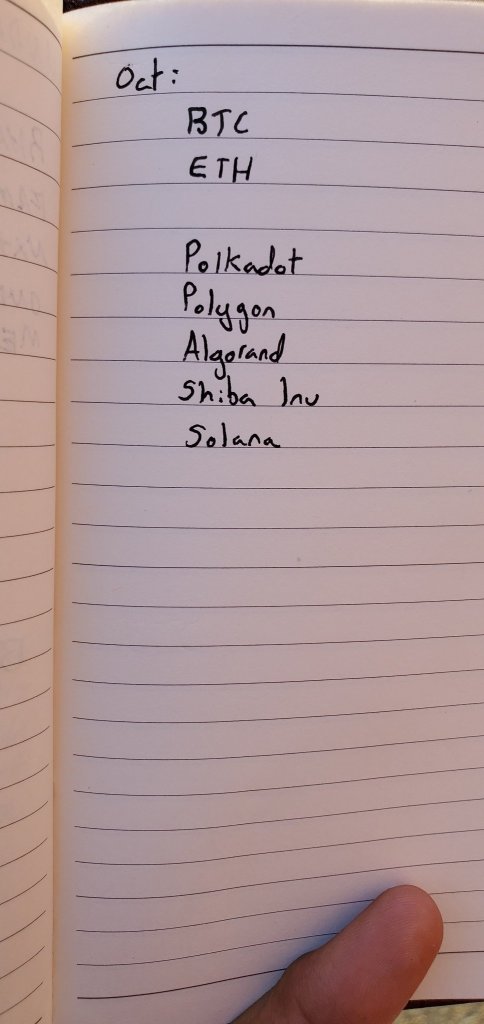 Oct:
BTC
ETH
Polkadot
Polygon
Algorand
Shiba Inu
Solana